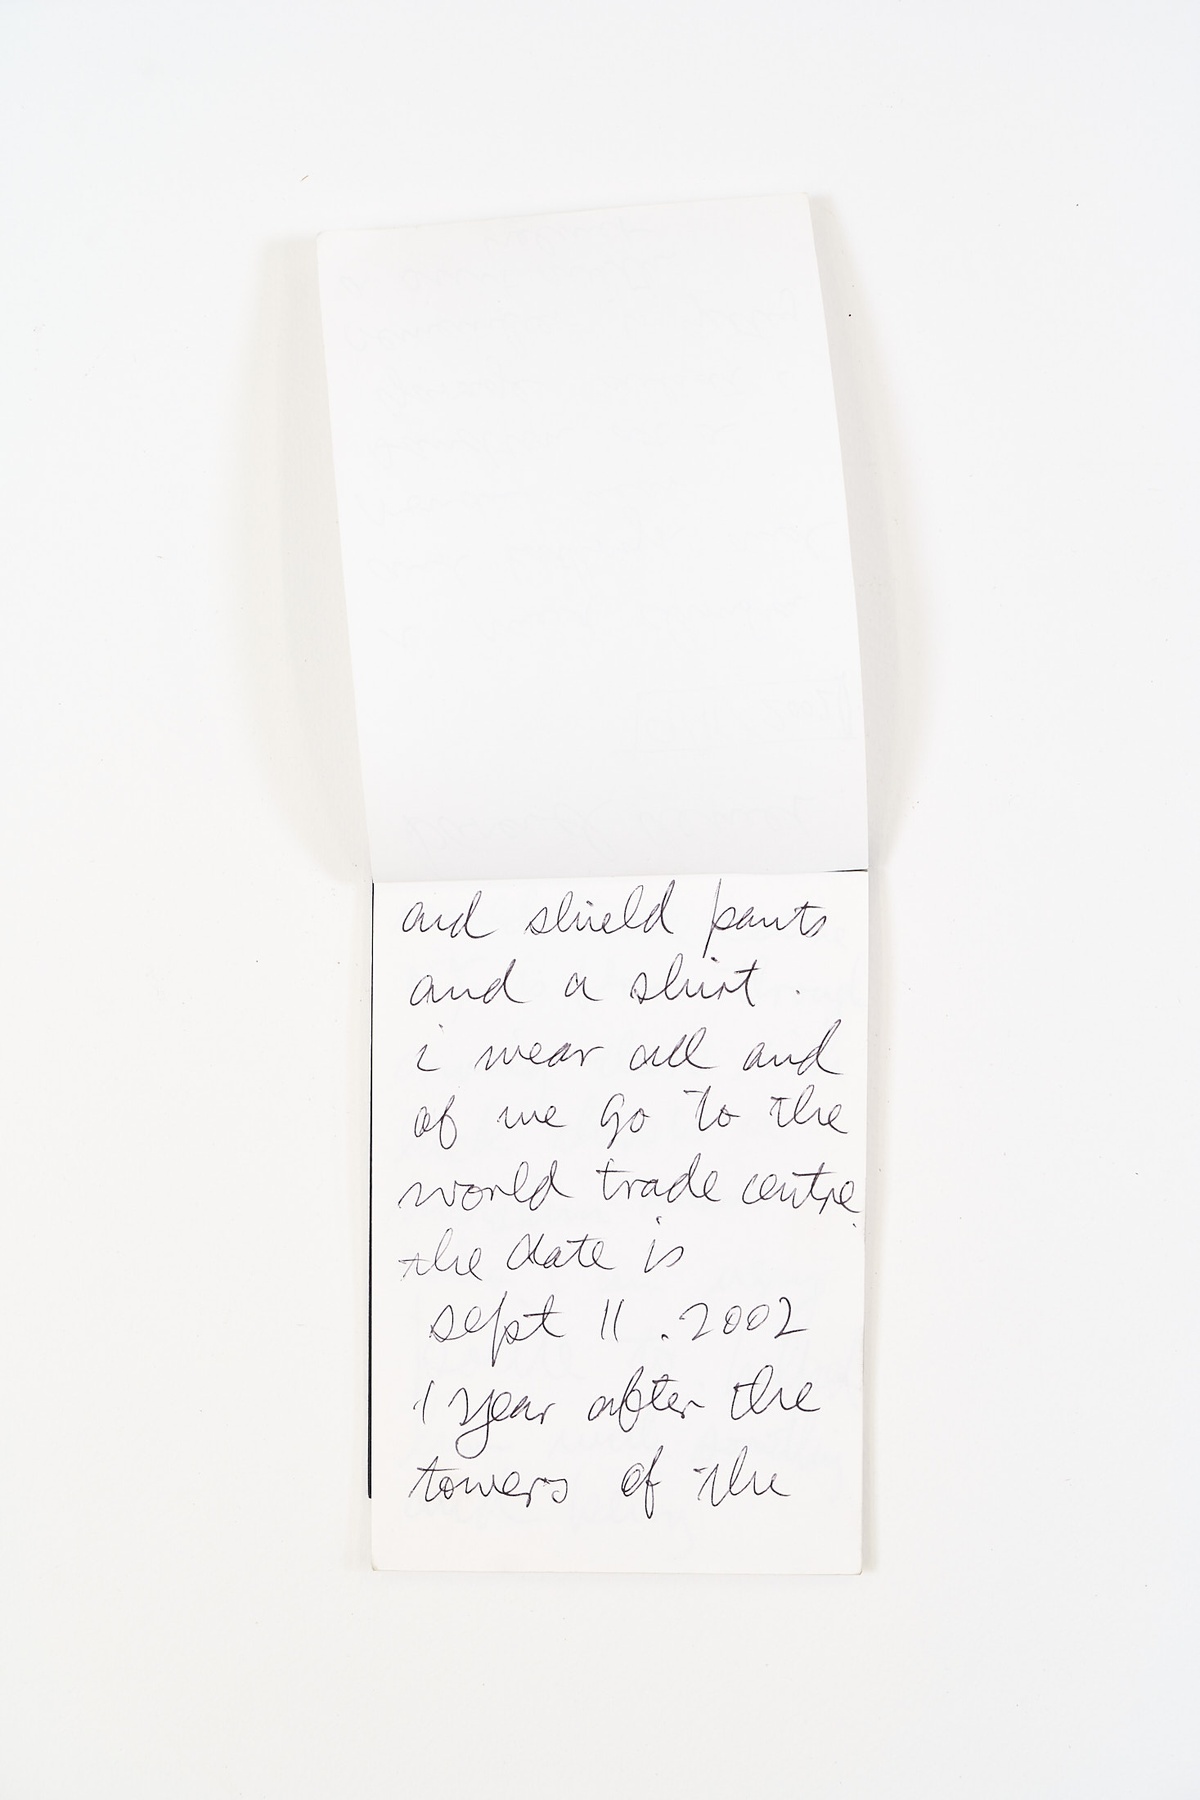 and shield pants
and a shirt .
i wear all and
of we go to the
world trade centre.
the date is
sept 11 . 2002
1 year after the
towers of the